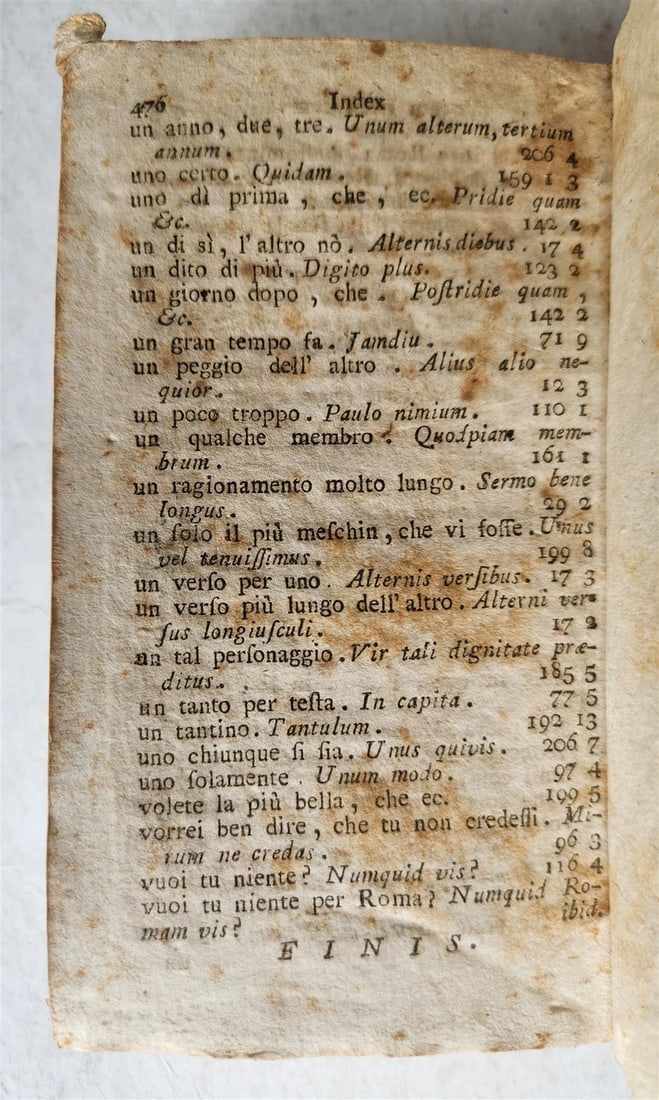 476 Index
un anno, due, tre. Unum alterum, tertium
annum. 206 4
uno certo. Quidam. 159 1 3
uno dì prima, che, ec. Pridie quam
&c. 142 2
un di sì, l'altro nò. Alternis diebus. 17 4
un dito di più. Digito plus. 123 2
un giorno dopo, che. Poſtridie quam,
&c. 142 2
un gran tempo fa. Jamdiu. 71 9
un peggio dell' altro. Alius alio ne-
quior. 12 3
un poco troppo. Paulo nimium. 110 1
un qualche membro. Quodpiam mem-
brum. 161 1
un ragionamento molto lungo. Sermo bene
longus. 29 2
un ſolo il più meſchin, che vi foſſe. Unus
vel tenuiſſimus. 199 8
un verſo per uno. Alternis verſibus. 17 3
un verſo più lungo dell' altro. Alterni ver-
ſus longiuſculi. 17 2
un tal perſonaggio. Vir tali dignitate præ-
ditus. 185 5
un tanto per teſta. In capita. 77 5
un tantino. Tantulum. 192 13
uno chiunque ſi ſia. Unus quivis. 206 7
uno ſolamente. Unum modo. 97 4
volete la più bella, che ec. 199 5
vorrei ben dire, che tu non credeſſi. Mi-
rum ne credas. 96 3
vuoi tu niente? Numquid vis? 116 4
vuoi tu niente per Roma? Numquid Ro-
mam vis? ibid.
FINIS.